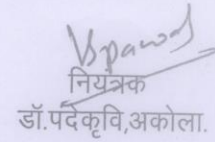 नियंत्रक
डॉ.पंदेकृवि,अकोला.